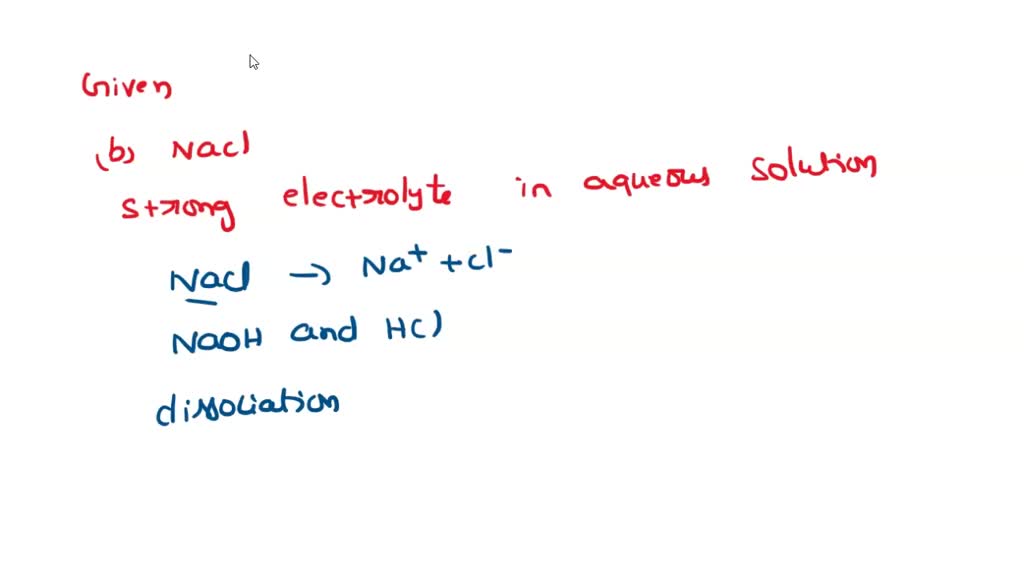 Given
(b) NaCl
strong electrolyte in aqueous solution
NaCl → Na⁺ + Cl⁻
NaOH and HCl
dissociation